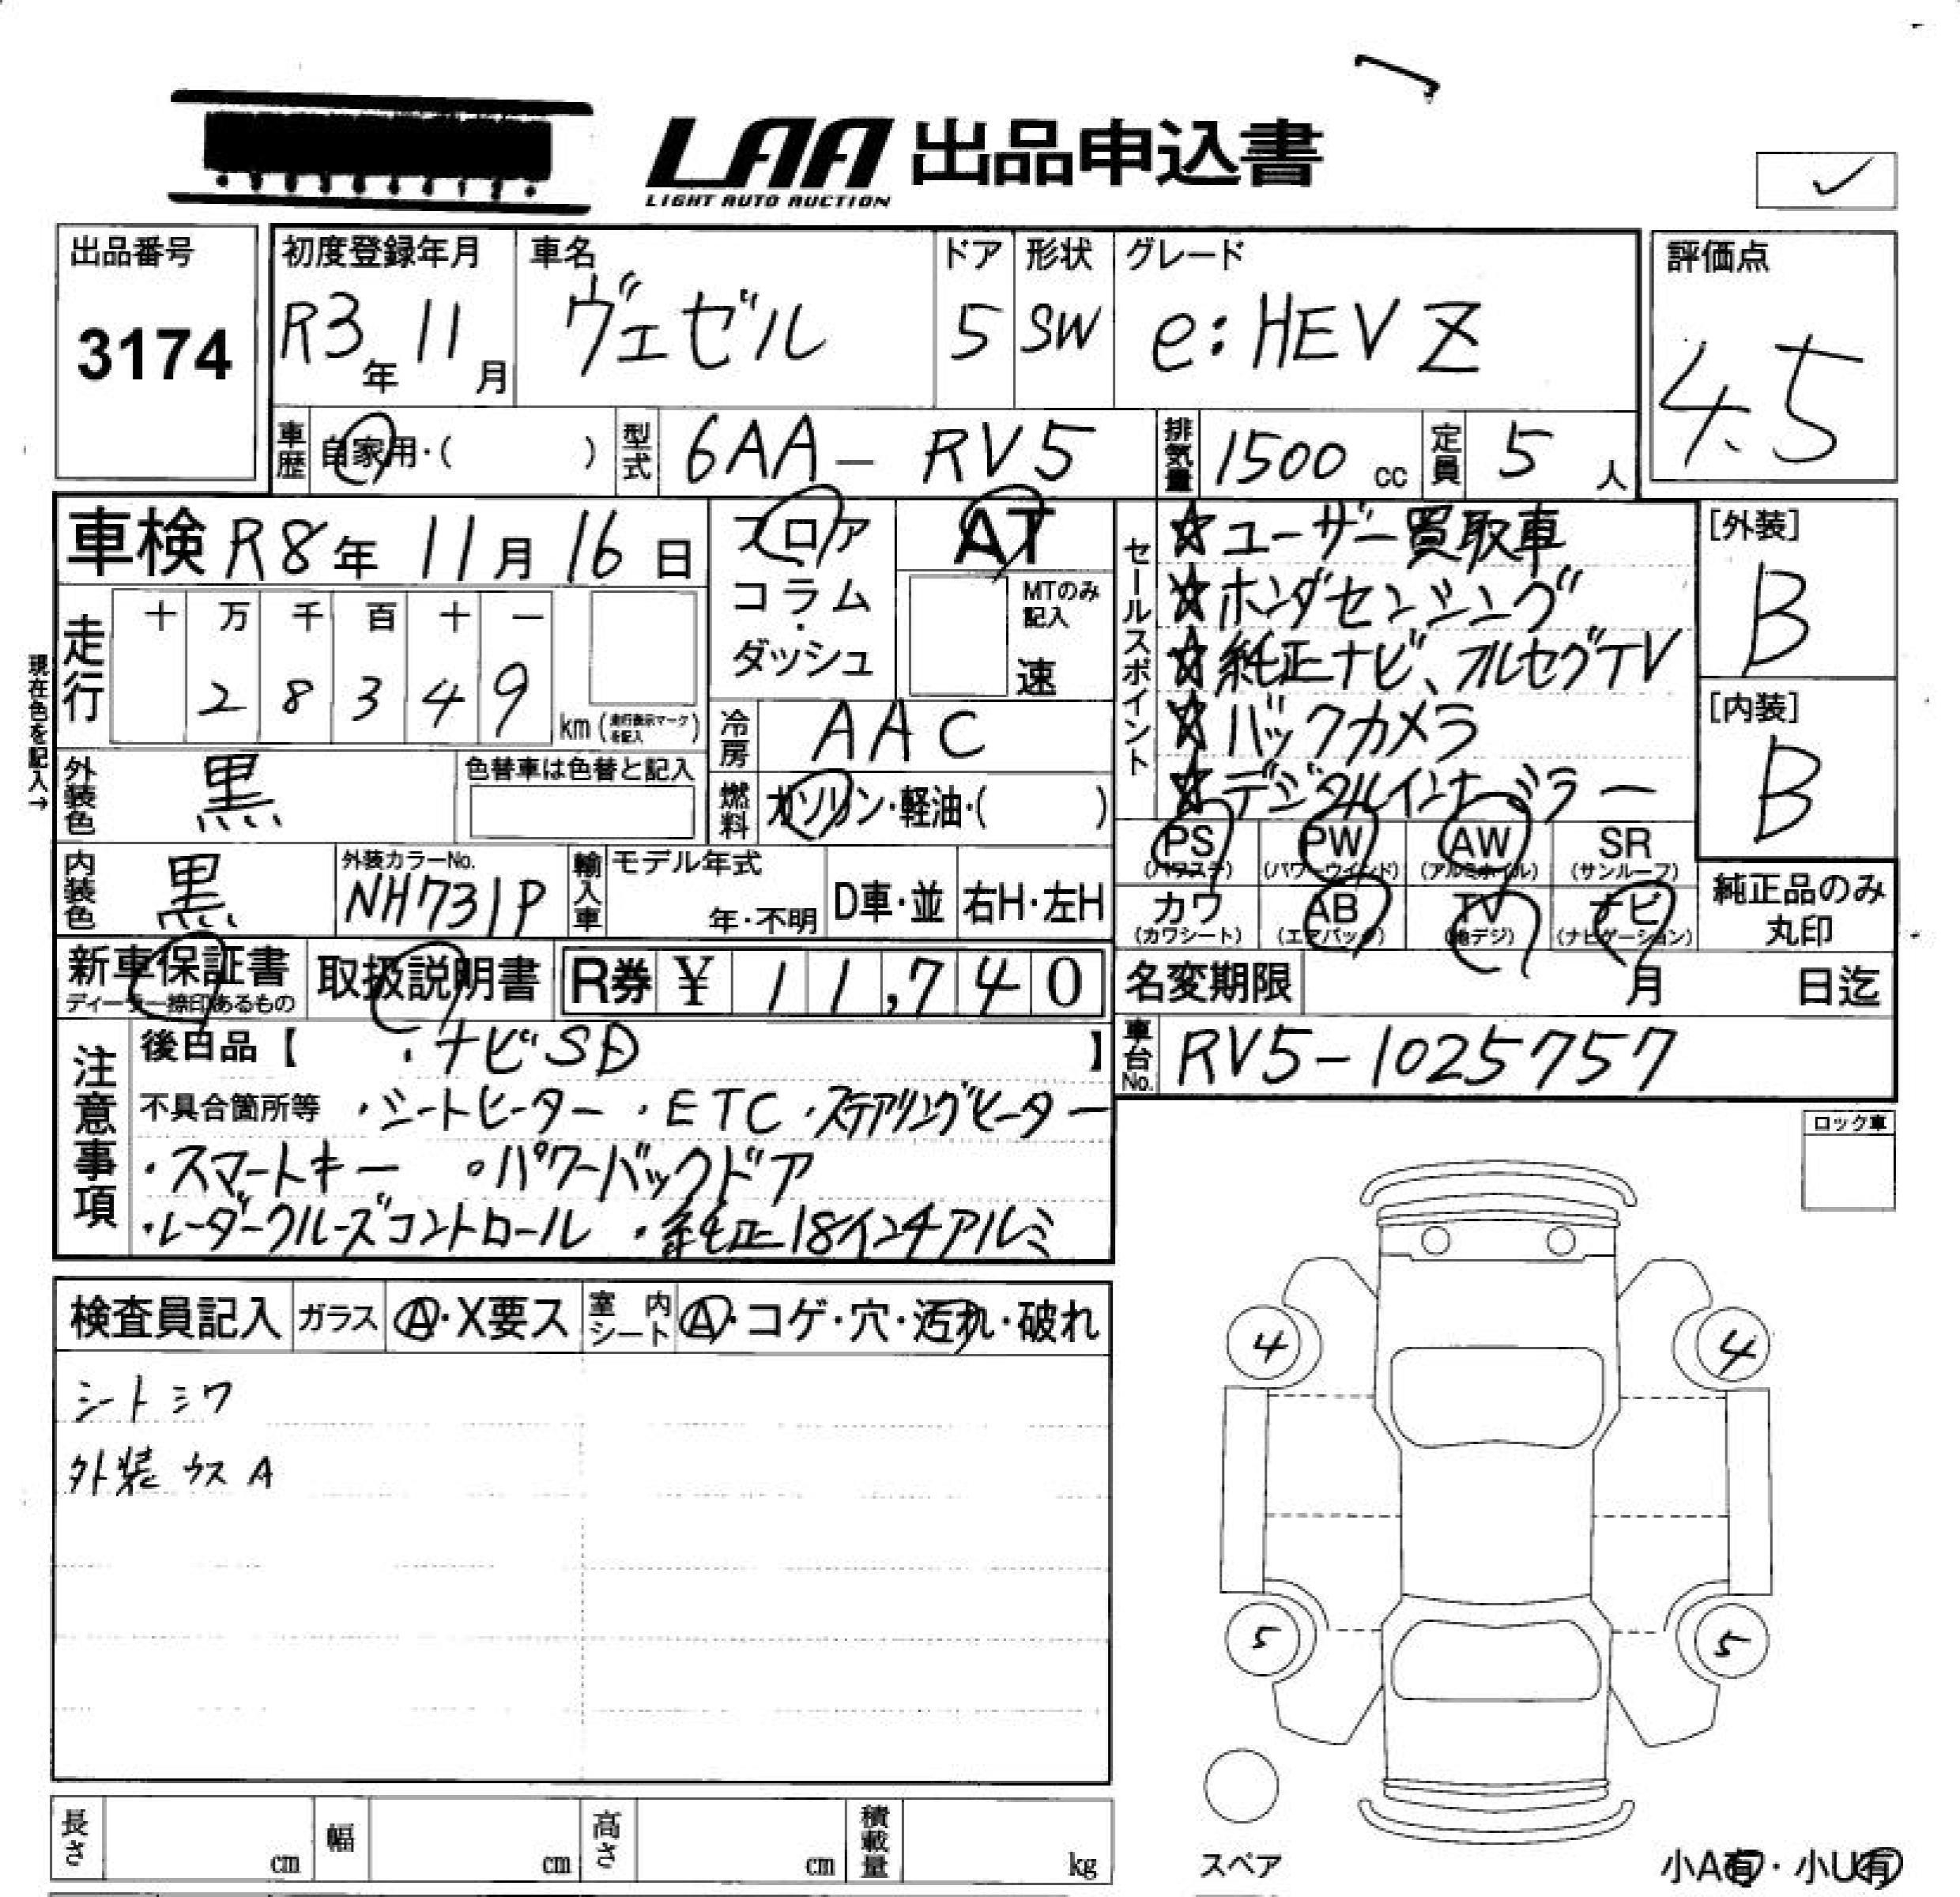 LAA 出品申込書
LIGHT AUTO AUCTION
出品番号
3174
初度登録年月
R3年 11月
車名
ヴェゼル
ドア
5
形状
SW
グレード
e:HEV Z
評価点
4.5
車歴 自家用・( )
型式 6AA - RV5
排気量 1500 cc
定員 5 人
車検 R8年 11月 16日
走行 十 万 千 百 十 一
2 8 3 4 9
km (走行表示マークを記入)
現在色を記入→
フロア・コラム・ダッシュ
AT
MTのみ記入
速
冷房 AAC
燃料 ガソリン・軽油・( )
外装色 黒
色替車は色替と記入
内装色 黒
外装カラーNo.
NH731P
輸入車
モデル年式
年・不明
D車・並
右H・左H
セールスポイント
☆ユーザー買取車
☆ホンダセンシング
☆純正ナビ、フルセグTV
☆バックカメラ
☆デジタルインナーミラー
[外装]
B
[内装]
B
PS (パワステ)
PW (パワーウインド)
AW (アルミホイル)
SR (サンルーフ)
カワ (カワシート)
AB (エアバック)
TV (地デジ)
ナビ (ナビゲーション)
純正品のみ丸印
新車保証書
ディーラー捺印あるもの
取扱説明書
R券 ¥ 11,740
名変期限 月 日迄
車台No. RV5-1025757
注意事項
後日品【 ・ナビSD 】
不具合箇所等 ・シートヒーター ・ETC ・ステアリングヒーター
・スマートキー ・パワーバックドア
・レーダークルーズコントロール ・純正18インチアルミ
ロック車
検査員記入
ガラス A・X要ス
室内シート A・コゲ・穴・汚れ・破れ
シートシワ
外装 ウス A
4 4
5 5
スペア
長さ cm
幅 cm
高さ cm
積載量 kg
小A有・小U有